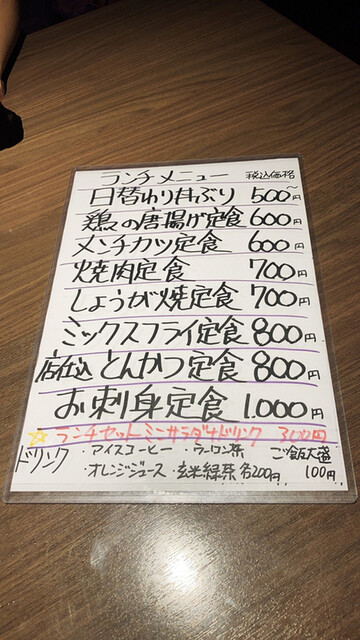 ランチメニュー 税込価格
日替わり丼ぶり 500~円
鶏の唐揚げ定食 600円
メンチカツ定食 600円
焼肉定食 700円
しょうが焼定食 700円
ミックスフライ定食 800円
店仕込とんかつ定食 800円
お刺身定食 1.000円
☆ランチセットミニサラダ+ドリンク 300円
ドリンク ・アイスコーヒー ・ウーロン茶 ご飯大盛
・オレンジジュース ・玄米緑茶 各200円 100円